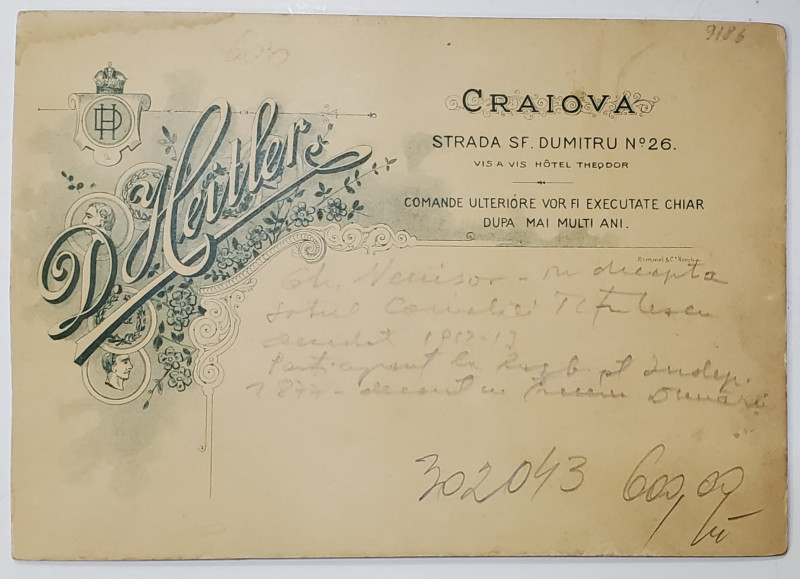 9186
HD
D. Hertler
CRAIOVA
STRADA SF. DUMITRU Nº 26.
VIS A VIS HÔTEL THEODOR
COMANDE ULTERIÓRE VOR FI EXECUTATE CHIAR
DUPA MAI MULTI ANI.
Gh. - in dreapta
soțul Corneliei Titulescu
1912-13
Participant la Războ. pt Indep.
1877 - decorat cu Trecerea Dunării
302043 600,00